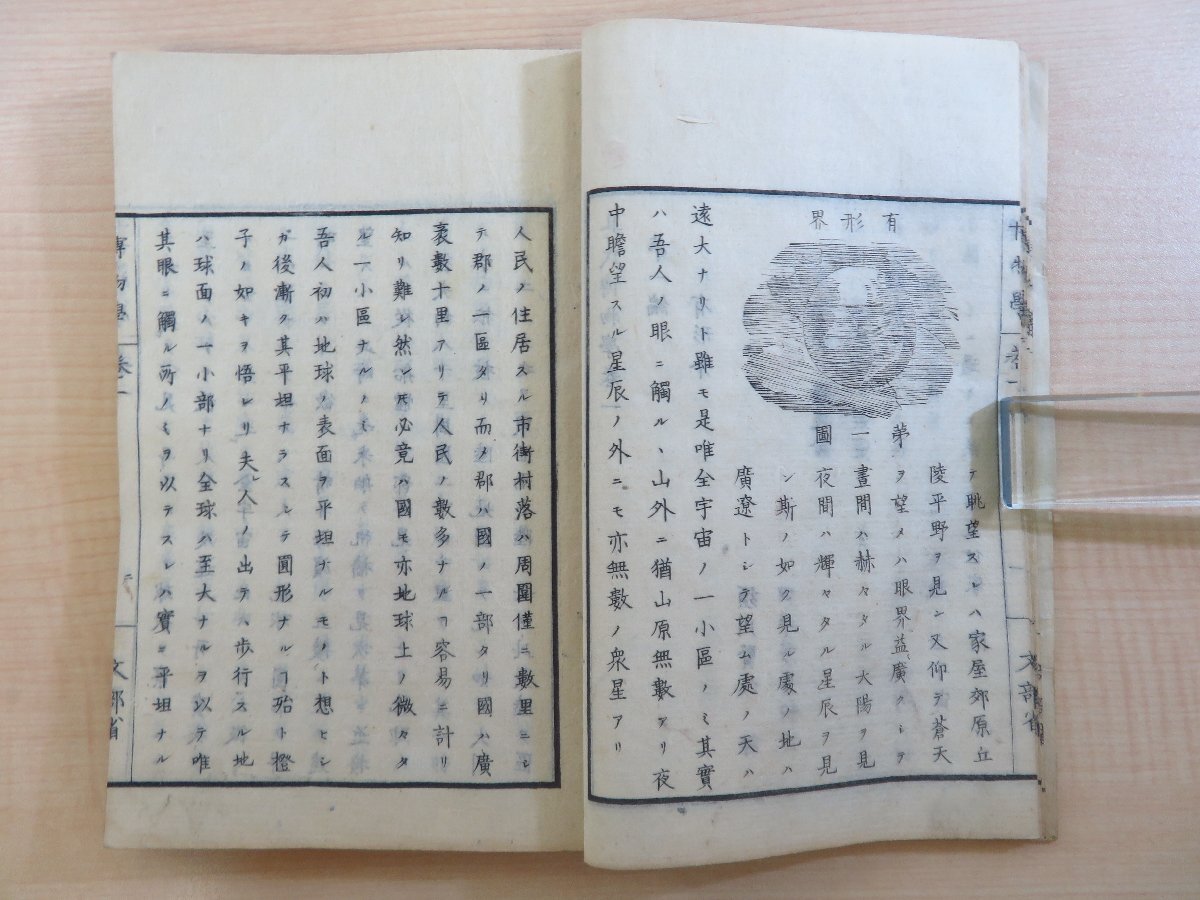 有形界
第一圖
テ眺望スレハ家屋郊原丘
陵平野ヲ見ン又仰テ蒼天
ヲ望メハ眼界益廣クシテ
晝間ハ赫々タル大陽ヲ見
夜間ハ輝々タル星辰ヲ見
ン斯ノ如ク見ル處ノ地ハ
廣遼トシテ望ム處ノ天ハ
遠大ナリト雖モ是唯全宇宙ノ一小區ノミ其實
ハ吾人ノ眼ニ觸ルヽ山外ニ猶山原無數アリ夜
中瞻望スル星辰ノ外ニモ亦無數ノ衆星アリ
人民ノ住居スル市街村落ハ周圍僅ニ數里ニシ
テ郡ノ一區タリ而メ郡ハ國ノ一部タリ國ハ廣
袤數十里アリテ人民ノ數多ナルヿ容易ニ計リ
知リ難シ然レ𪜈必竟ハ國モ亦地球上ノ微々タ
ル一小區ナルノミ
吾人初ハ地球ノ表面ヲ平坦ナルモノト想ヒシ
ガ後漸ク其平坦ナラスシテ圓形ナルヿ殆ト橙
子ノ如キヲ悟レリ夫人ノ出テハ歩行スル地
ハ球面ノ一小部ナリ全球ハ至大ナルヲ以テ唯
其眼ニ觸ル所ノミヲ以テスレハ實ニ平坦ナル
博物學
卷一
文部省